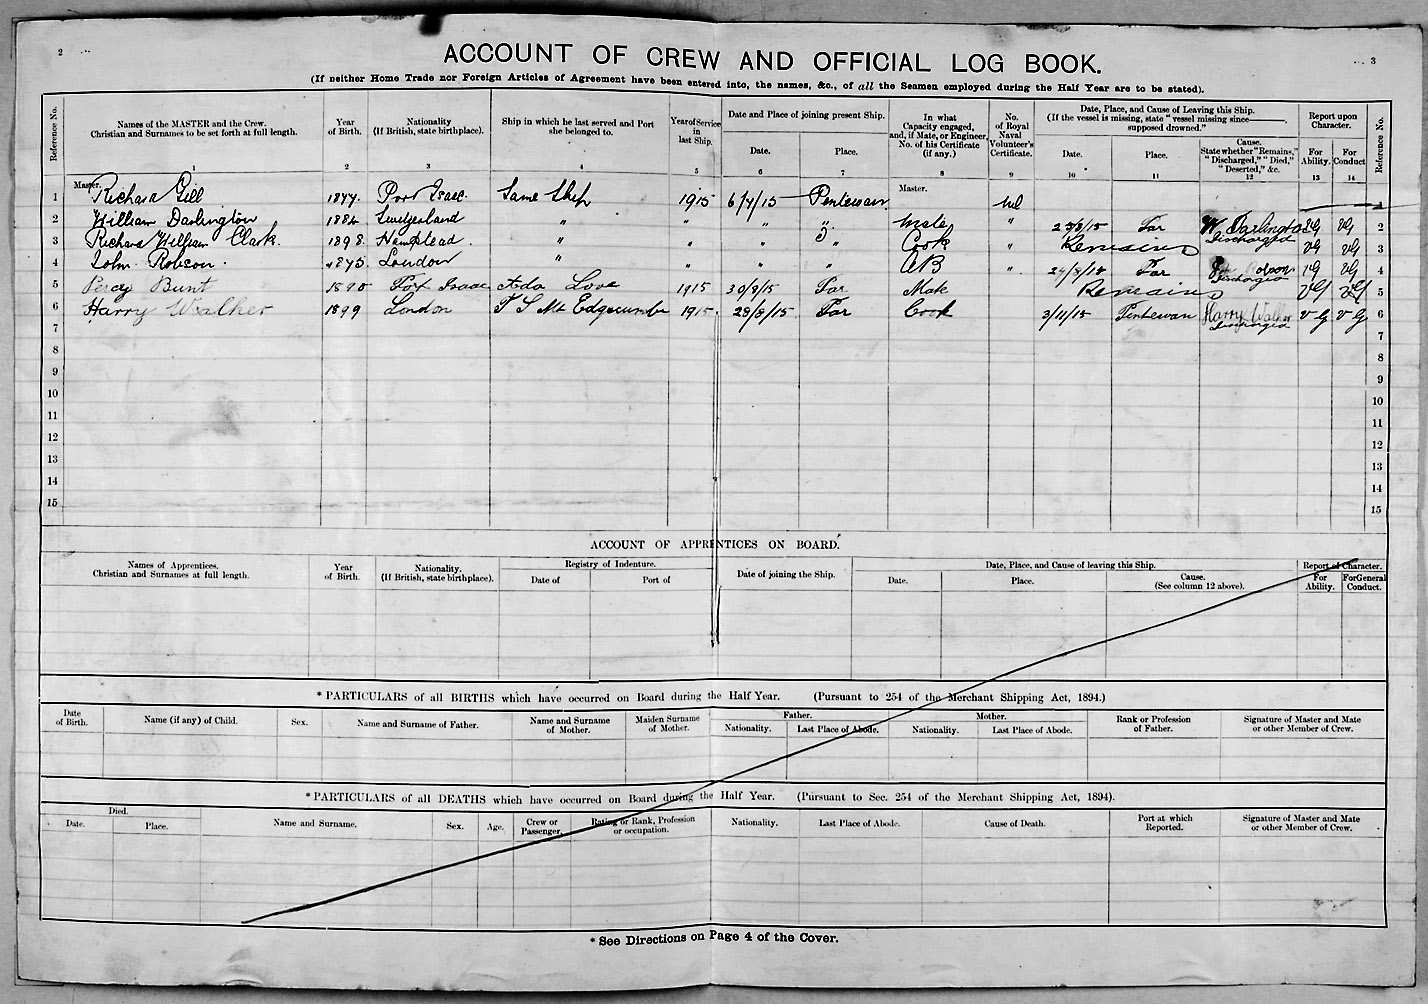 2
3
ACCOUNT OF CREW AND OFFICIAL LOG BOOK.
(If neither Home Trade nor Foreign Articles of Agreement have been entered into, the names, &c., of all the Seamen employed during the Half Year are to be stated).
Reference No. Names of the MASTER and the Crew. Christian and Surnames to be set forth at full length. Year of Birth. Nationality (If British, state birthplace). Ship in which he last served and Port she belonged to. Year of Service in last Ship. Date and Place of joining present Ship. Date. Place. In what Capacity engaged, and, if Mate, or Engineer, No. of his Certificate (if any.) No. of Royal Naval Volunteer's Certificate. Date, Place, and Cause of Leaving this Ship. (If the vessel is missing, state "vessel missing since——, supposed drowned." Date. Place. Cause. State whether "Remains," "Discharged," "Died," "Deserted," &c. Report upon Character. For Ability. For Conduct Reference No.
1 2 3 4 5 6 7 8 9 10 11 12 13 14
1 Master. Richard Gill 1877. Port Isaac. Same Ship 1915 6/7/15 Pentewan Master. nil 1
2 William Darlington 1884 Switzerland " " " " Mate " 23/8/15 Far W. Darlington Discharged VG VG 2
3 Richard William Clark. 1898. Hampstead. " " " " Cook " Remains VG VG 3
4 John Robson. 1875. London " " " " AB " 24/8/15 Far Robson Discharged VG VG 4
5 Percy Bunt 1890 Port Isaac Ada Love 1915 30/8/15 Far Mate Remains VG VG 5
6 Harry Walker 1899 London T S Mt Edgecumbe 1915 28/8/15 Far Cook 3/11/15 Pentewan Harry Walker Discharged VG VG 6
7 7
8 8
9 9
10 10
11 11
12 12
13 13
14 14
15 15
ACCOUNT OF APPRENTICES ON BOARD.
Names of Apprentices. Christian and Surnames at full length. Year of Birth. Nationality. (If British, state birthplace). Registry of Indenture. Date of Port of Date of joining the Ship. Date, Place, and Cause of leaving this Ship. Date. Place. Cause. (See column 12 above). Report of Character. For Ability. For General Conduct.
*PARTICULARS of all BIRTHS which have occurred on Board during the Half Year. (Pursuant to 254 of the Merchant Shipping Act, 1894.)
Date of Birth. Name (if any) of Child. Sex. Name and Surname of Father. Name and Surname of Mother. Maiden Surname of Mother. Father. Nationality. Last Place of Abode. Mother. Nationality. Last Place of Abode. Rank or Profession of Father. Signature of Master and Mate or other Member of Crew.
*PARTICULARS of all DEATHS which have occurred on Board during the Half Year. (Pursuant to Sec. 254 of the Merchant Shipping Act, 1894).
Died. Date. Place. Name and Surname. Sex. Age. Crew or Passenger. Rating or Rank, Profession or occupation. Nationality. Last Place of Abode. Cause of Death. Port at which Reported. Signature of Master and Mate or other Member of Crew.
*See Directions on Page 4 of the Cover.